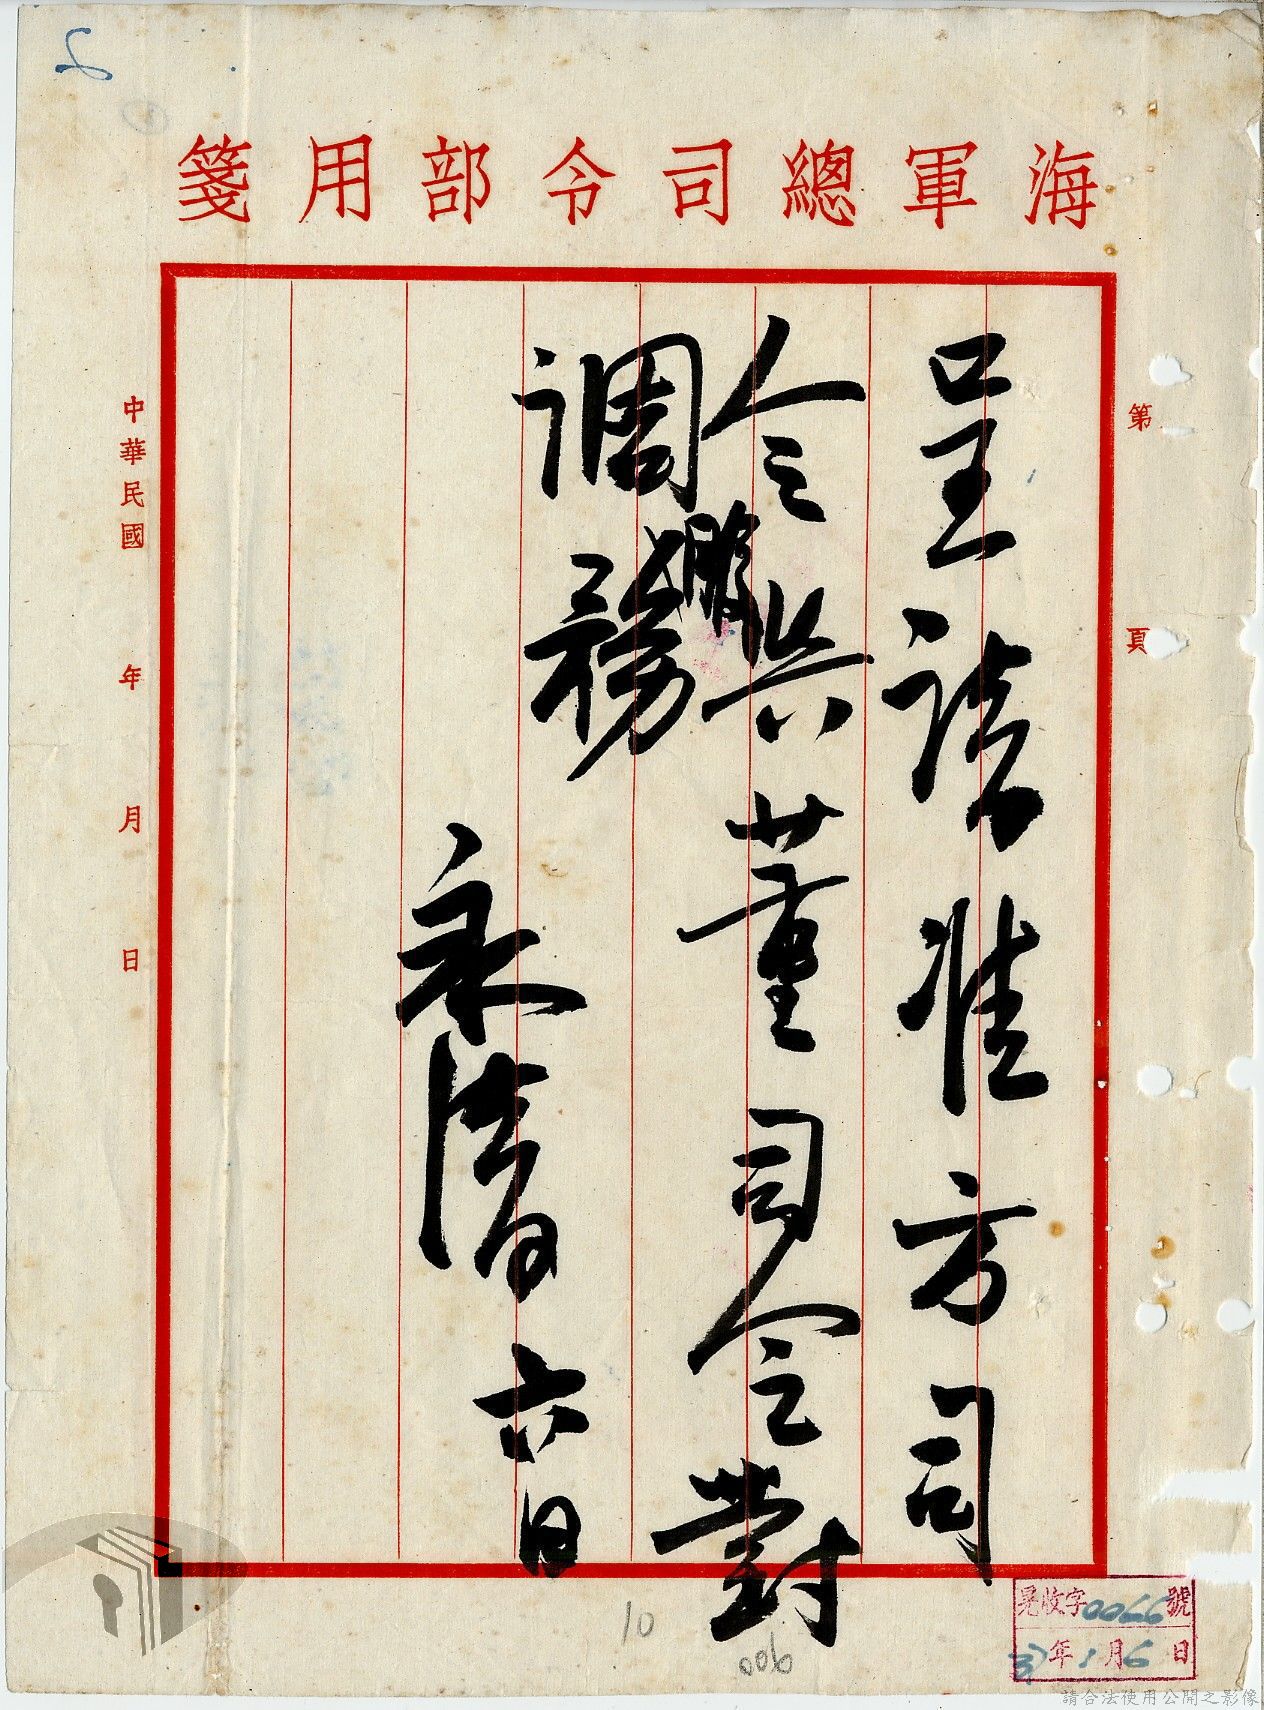 海軍總司令部用箋
第 頁
呈請准方司
令瑩與董司令對
調務
永清 六日
中華民國 年 月 日
晃收字0066號
37年1月6日
10
006
請合法使用公開之影像